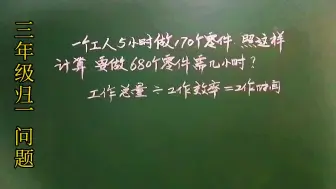 三年级归一问题
一个工人5小时做170个零件,照这样
计算 要做680个零件需几小时?
工作总量÷工作效率=工作时间